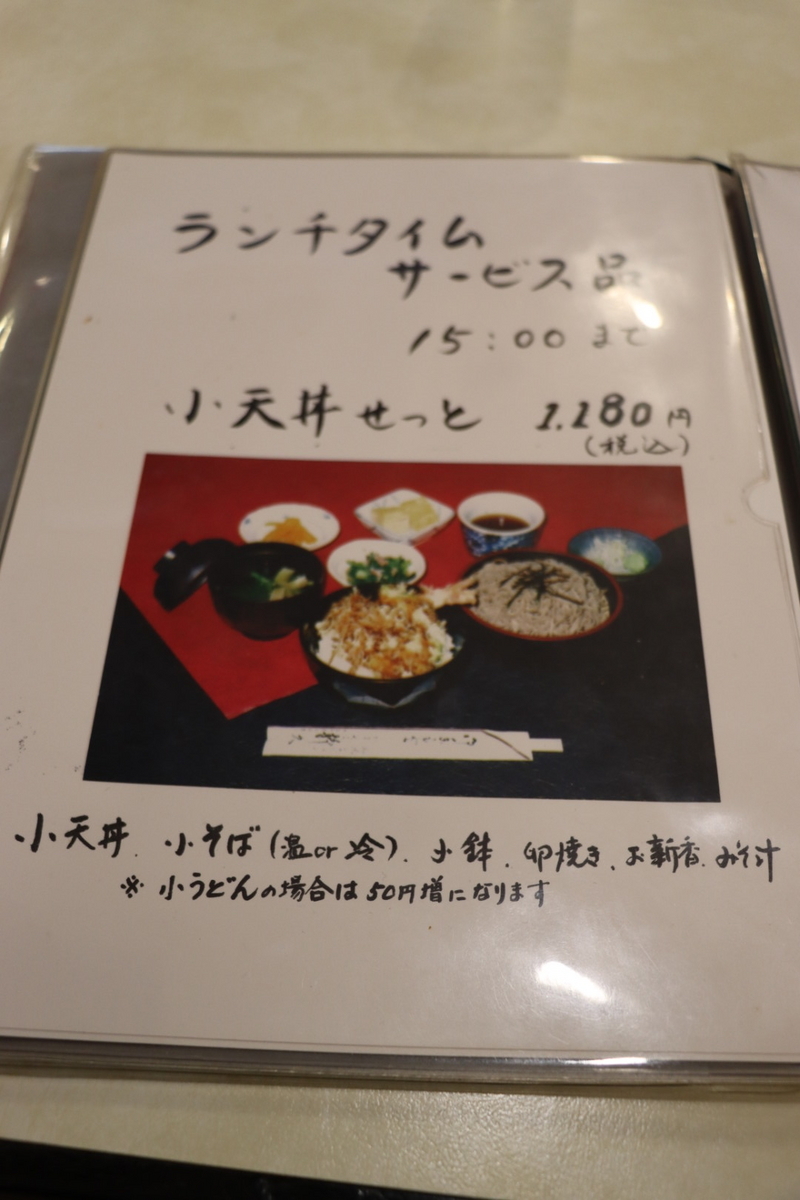 ランチタイム
サービス品
15:00 まで
小天丼せっと 1,180円
(税込)
小天丼、小そば(温or冷)、小鉢、卵焼き、お新香、みそ汁
※ 小うどんの場合は50円増になります